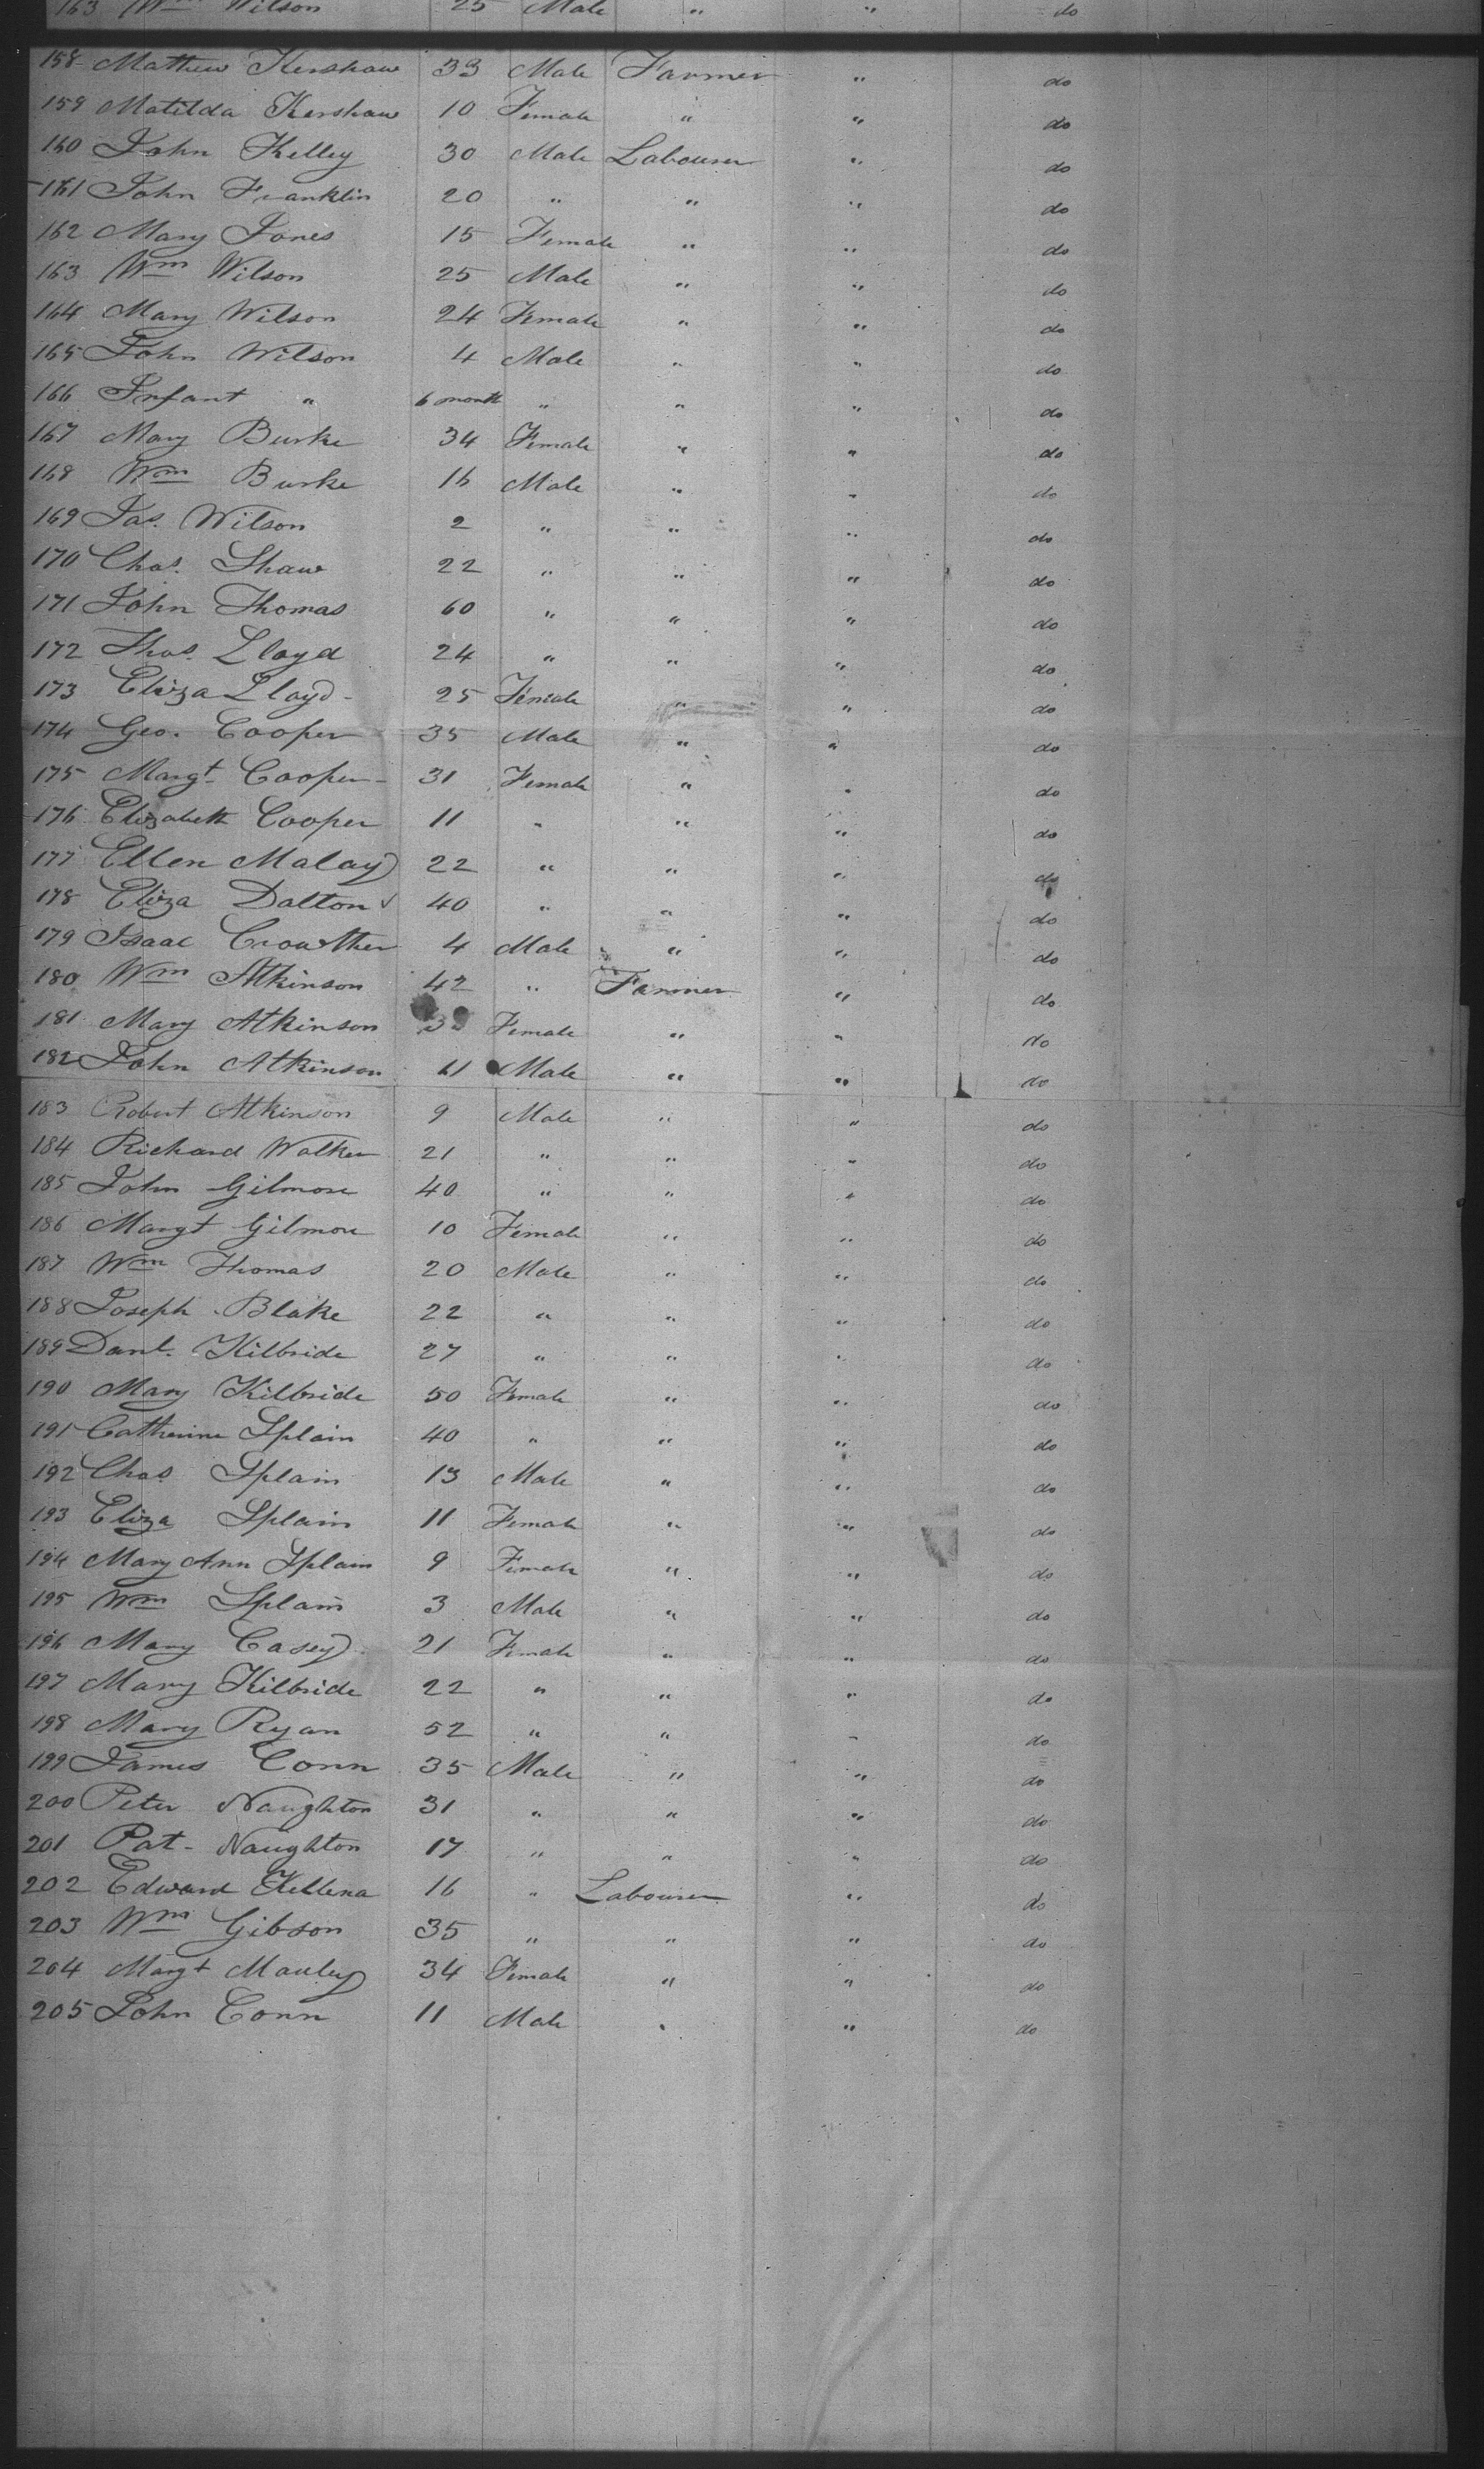 163 Wm Wilson 25 Male " " do
158 Mathew Kershaw 33 Male Farmer " do
159 Matilda Kershaw 10 Female " " do
160 John Kelley 30 Male Labourer " do
161 John Franklin 20 " " " do
162 Mary Jones 15 Female " " do
163 Wm Wilson 25 Male " " do
164 Mary Wilson 24 Female " " do
165 John Wilson 4 Male " " do
166 Infant " 6 month " " " do
167 Mary Burke 34 Female " " do
168 Wm Burke 16 Male " " do
169 Jas. Wilson 2 " " " do
170 Chas. Shaw 22 " " " do
171 John Thomas 60 " " " do
172 Thos. Lloyd 24 " " " do
173 Eliza Lloyd 25 Female " " do
174 Geo. Cooper 35 Male " " do
175 Margt Cooper 31 Female " " do
176 Elizabeth Cooper 11 " " " do
177 Ellen Malay 22 " " " do
178 Eliza Dalton 40 " " " do
179 Isaac Crowther 4 Male " " do
180 Wm Atkinson 42 " Farmer " do
181 Mary Atkinson Female " " do
182 John Atkinson 11 Male " " do
183 Robert Atkinson 9 Male " " do
184 Richard Walker 21 " " " do
185 John Gilmore 40 " " " do
186 Margt Gilmore 10 Female " " do
187 Wm Thomas 20 Male " " do
188 Joseph Blake 22 " " " do
189 Danl. Kilbride 27 " " " do
190 Mary Kilbride 50 Female " " do
191 Catherine Splain 40 " " " do
192 Chas Splain 13 Male " " do
193 Eliza Splain 11 Female " " do
194 Mary Ann Splain 9 Female " " do
195 Wm Splain 3 Male " " do
196 Mary Casey 21 Female " " do
197 Mary Kilbride 22 " " " do
198 Mary Ryan 52 " " " do
199 James Conn 35 Male " " do
200 Peter Naughton 31 " " " do
201 Pat- Naughton 17 " " " do
202 Edward Kellena 16 " Labourer " do
203 Wm Gibson 35 " " " do
204 Margt Manley 34 Female " " do
205 John Conn 11 Male " " do